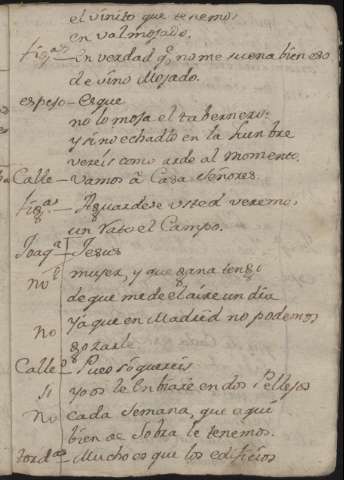 el vinito que tenemos
en valmojado.
Figas — En verdad q̄, no me suena bien eso
de vino Mojado.
espejo — Es que
no lo moja el tabernero:
y si no echadlo en la lumbre
vereis como arde al momento.
Calle — Vamos â Casa Señores.
Figas — Aguardese usted veremos
un rato el Campo.
Joaqa Jesus
no muger, y que gana tengo
de que me de el aire un dia
no ya que en Madrid no podemos
gozarle.
Calle Pues si quereis
si yo os le enbiare en dos Pellejos
no cada semana, que aqui
bien de sobra le tenemos.
Mucho es que los edificios